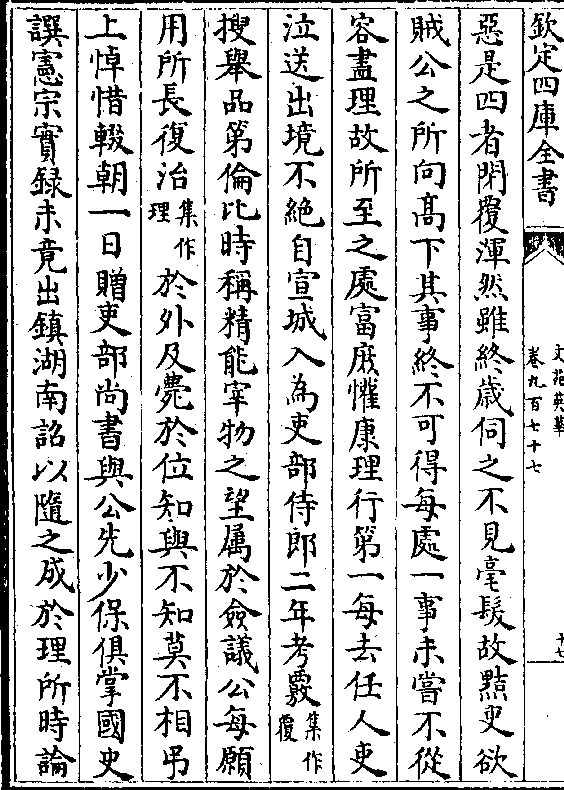 欽定四庫全書
文苑英華
卷九百七十七
十七
惡是四者閉覆渾然雖終歲伺之不見毫髮故黠吏欲
賊公之所向髙下其事終不可得每處一事未嘗不從
容盡理故所至之處富庶懽康理行第一每去任人吏
泣送出境不絶自宣城入為吏部侍郎二年考覈集作覆
搜舉品第倫比時稱精能宰物之望属於僉議公每願
用所長復治集作理於外及薨於位知與不知莫不相弔
上悼惜輟朝一日贈吏部尚書與公先少保俱掌國史
譔憲宗實録未竟出鎮湖南詔以隨之成於理所時論